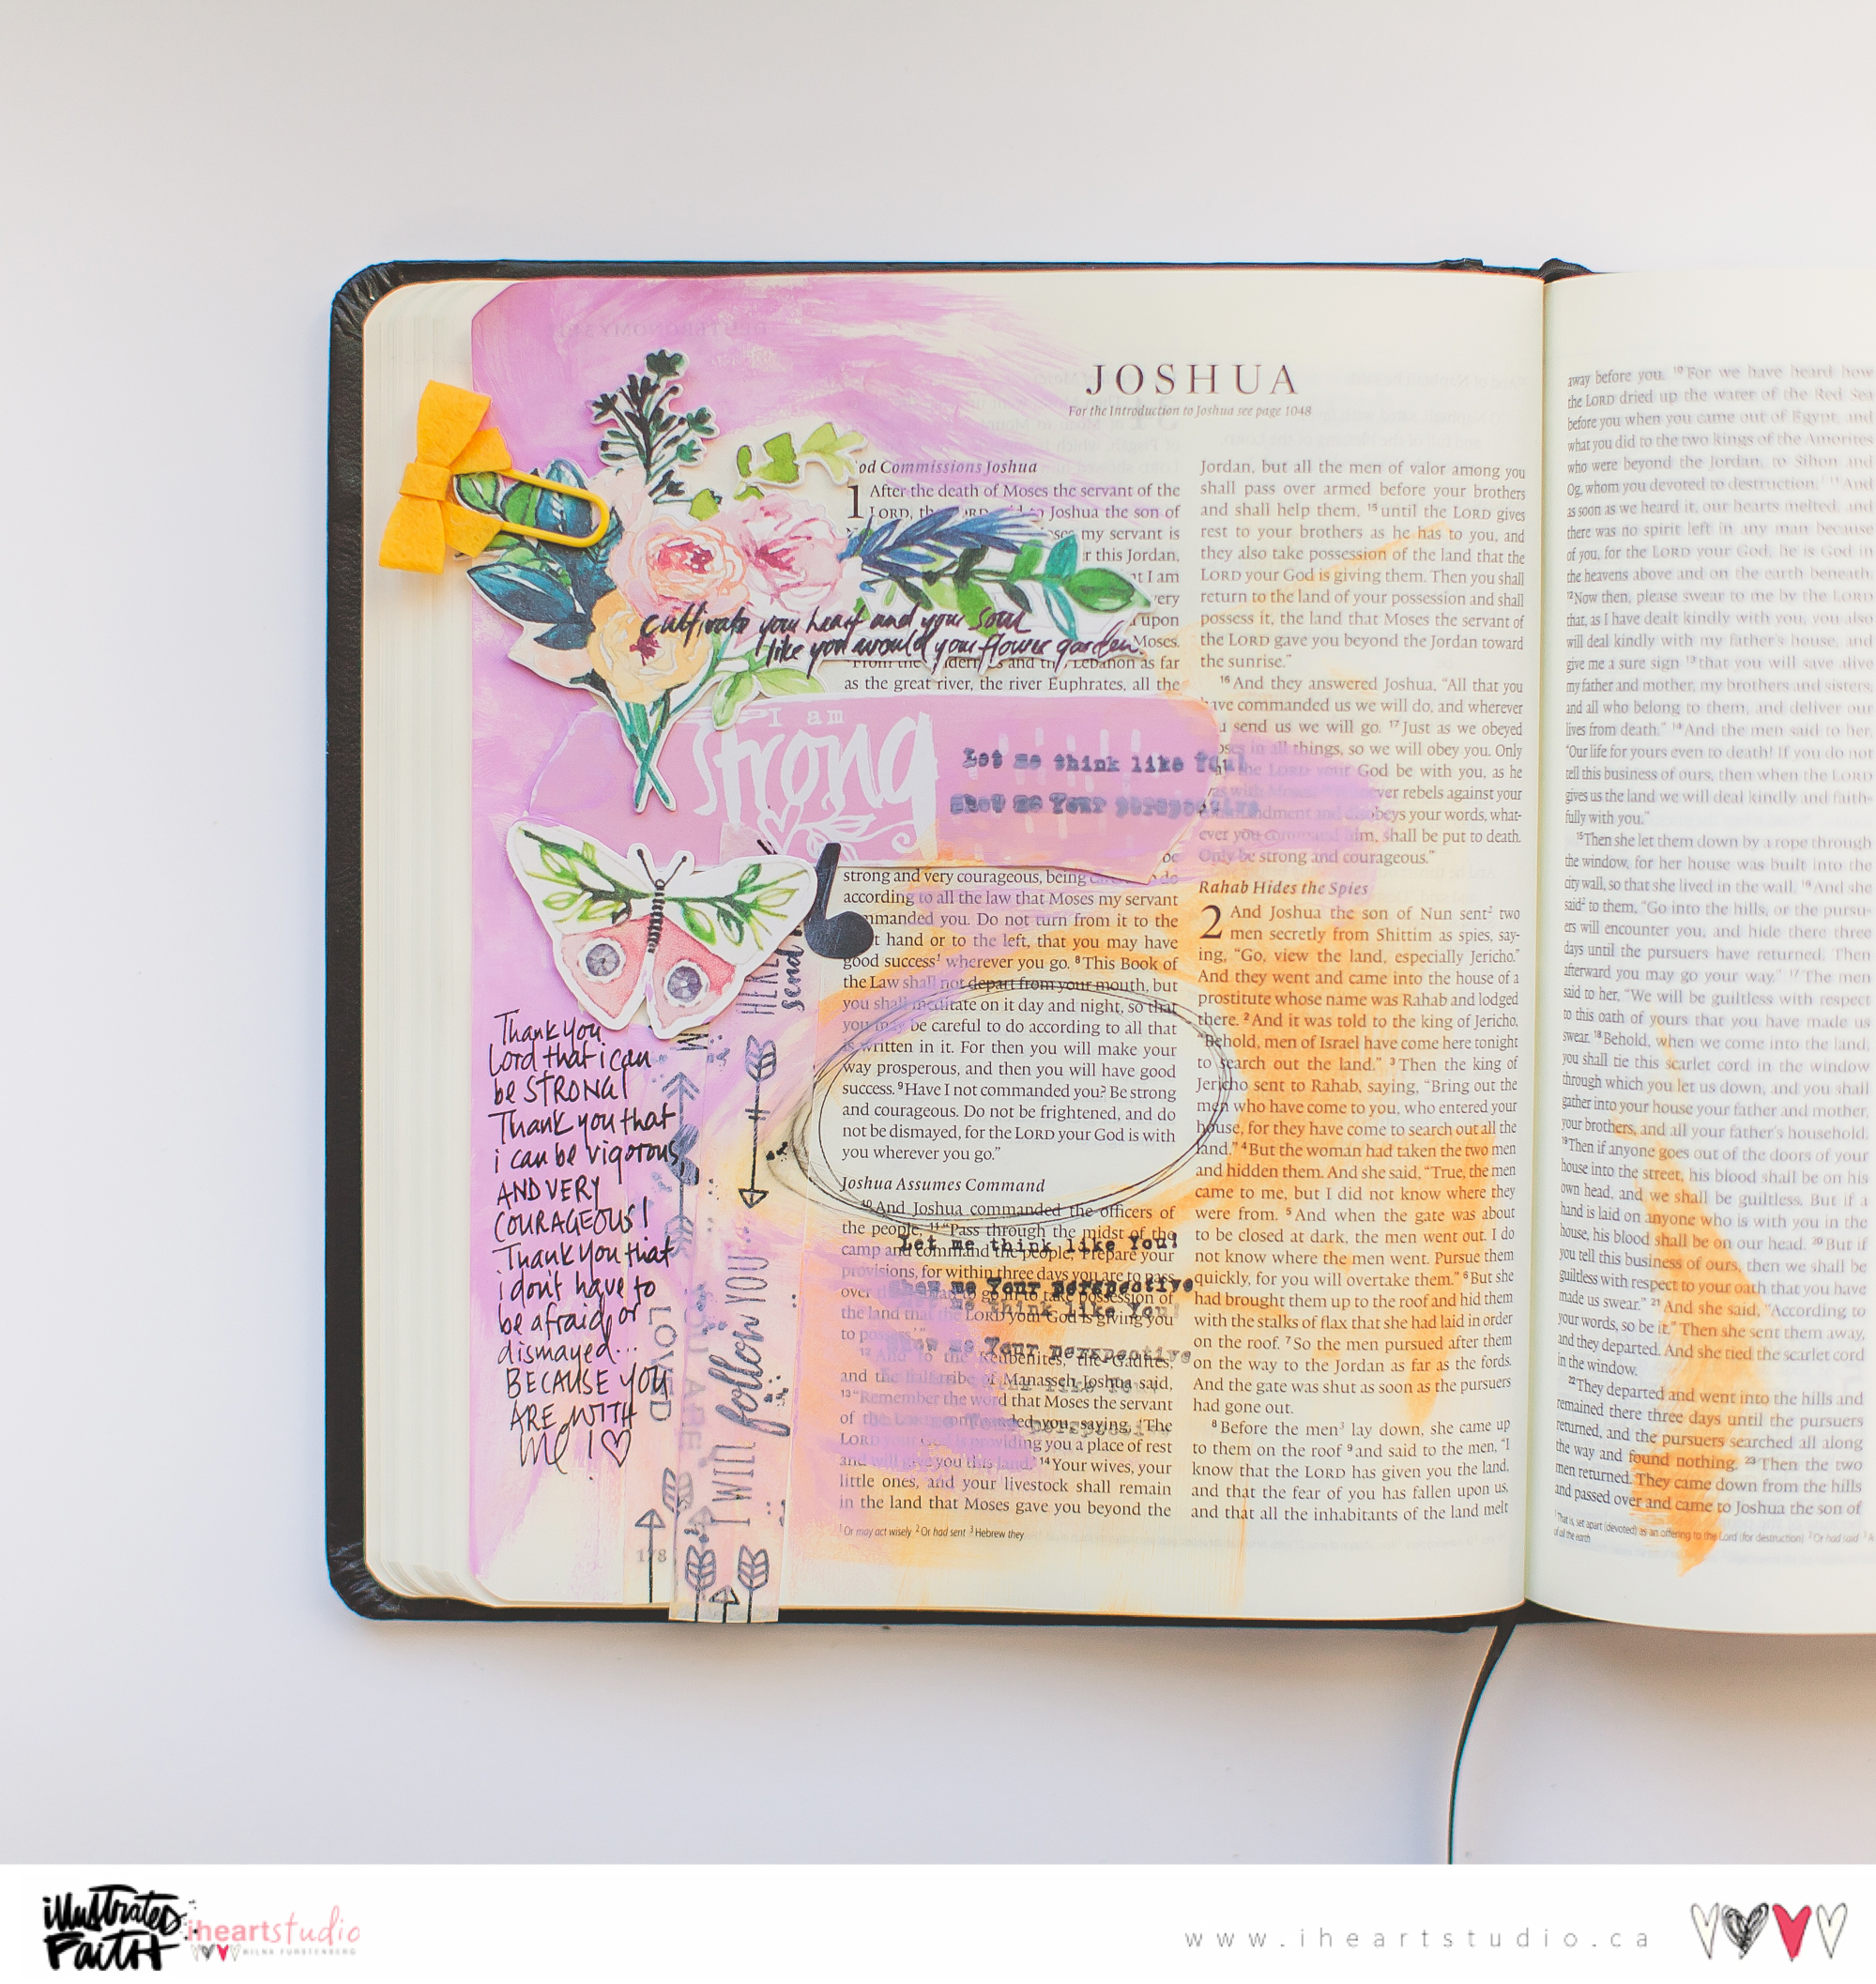 JOSHUA
For the Introduction to Joshua see page 1048
od Commissions Joshua
1 After the death of Moses the servant of the
LORD, th Joshua the son of
my servant is
r this Jordan,
t I am
very
upon
Moses.
From the and Lebanon as far
as the great river, the river Euphrates, all the
cultivate your heart and your soul
like you would your flower garden.
I am
strong
Let me think like You!
Show me Your perspective
strong and very courageous, being to do
according to all the law that Moses my servant
mmanded you. Do not turn from it to the
t hand or to the left, that you may have
good success¹ wherever you go. ⁸This Book of
the Law shall not depart from your mouth, but
you shall meditate on it day and night, so that
you may be careful to do according to all that
is written in it. For then you will make your
way prosperous, and then you will have good
success. ⁹Have I not commanded you? Be strong
and courageous. Do not be frightened, and do
not be dismayed, for the LORD your God is with
you wherever you go.”
Joshua Assumes Command
¹⁰And Joshua commanded the officers of
the people, ¹¹“Pass through the midst of the
camp and command the people, ‘Prepare your
provisions, for within three days you are to pass
over to go in to take possession of
the land that the LORD your God is giving you
to possess.’”
¹²And to the Reubenites, the Gadites,
and the half-tribe of Manasseh Joshua said,
¹³“Remember the word that Moses the servant
of the LORD commanded you, saying, ‘The
LORD your God is providing you a place of rest
and will give you this land.’ ¹⁴Your wives, your
little ones, and your livestock shall remain
in the land that Moses gave you beyond the
Let me think like You!
Show me Your perspective
me think like You!
Show me Your perspective
Your perspective
¹Or may act wisely ²Or had sent ³Hebrew they
Thank you
Lord that i can
be STRONG!
Thank you that
i can be vigorous,
AND VERY
COURAGEOUS!
Thank you that
i don't have to
be afraid or
dismayed...
BECAUSE YOU
ARE WITH
ME!
HERE
send
I WILL follow YOU...
YOU ARE
LOVED
178
Jordan, but all the men of valor among you
shall pass over armed before your brothers
and shall help them, ¹⁵until the LORD gives
rest to your brothers as he has to you, and
they also take possession of the land that the
LORD your God is giving them. Then you shall
return to the land of your possession and shall
possess it, the land that Moses the servant of
the LORD gave you beyond the Jordan toward
the sunrise.”
¹⁶And they answered Joshua, “All that you
ave commanded us we will do, and wherever
u send us we will go. ¹⁷Just as we obeyed
oses in all things, so we will obey you. Only
the LORD your God be with you, as he
was with ever rebels against your
ndment and disobeys your words, what-
ever you command him, shall be put to death.
Only be strong and courageous.”
Rahab Hides the Spies
2 And Joshua the son of Nun sent² two
men secretly from Shittim as spies, say-
ing, “Go, view the land, especially Jericho.”
And they went and came into the house of a
prostitute whose name was Rahab and lodged
there. ²And it was told to the king of Jericho,
“Behold, men of Israel have come here tonight
to search out the land.” ³Then the king of
Jericho sent to Rahab, saying, “Bring out the
men who have come to you, who entered your
house, for they have come to search out all the
land.” ⁴But the woman had taken the two men
and hidden them. And she said, “True, the men
came to me, but I did not know where they
were from. ⁵And when the gate was about
to be closed at dark, the men went out. I do
not know where the men went. Pursue them
quickly, for you will overtake them.” ⁶But she
had brought them up to the roof and hid them
with the stalks of flax that she had laid in order
on the roof. ⁷So the men pursued after them
on the way to the Jordan as far as the fords.
And the gate was shut as soon as the pursuers
had gone out.
⁸Before the men³ lay down, she came up
to them on the roof ⁹and said to the men, “I
know that the LORD has given you the land,
and that the fear of you has fallen upon us,
and that all the inhabitants of the land melt
away before you. ¹⁰For we have heard how
the LORD dried up the water of the Red Sea
before you when you came out of Egypt, and
what you did to the two kings of the Amorites
who were beyond the Jordan, to Sihon and
Og, whom you devoted to destruction.¹ ¹¹And
as soon as we heard it, our hearts melted, and
there was no spirit left in any man because
of you, for the LORD your God, he is God in
the heavens above and on the earth beneath.
¹²Now then, please swear to me by the LORD
that, as I have dealt kindly with you, you also
will deal kindly with my father's house, and
give me a sure sign ¹³that you will save alive
my father and mother, my brothers and sisters,
and all who belong to them, and deliver our
lives from death.” ¹⁴And the men said to her,
“Our life for yours even to death! If you do not
tell this business of ours, then when the LORD
gives us the land we will deal kindly and faith-
fully with you.”
¹⁵Then she let them down by a rope through
the window, for her house was built into the
city wall, so that she lived in the wall. ¹⁶And she
said² to them, “Go into the hills, or the pursu-
ers will encounter you, and hide there three
days until the pursuers have returned. Then
afterward you may go your way.” ¹⁷The men
said to her, “We will be guiltless with respect
to this oath of yours that you have made us
swear. ¹⁸Behold, when we come into the land,
you shall tie this scarlet cord in the window
through which you let us down, and you shall
gather into your house your father and mother,
your brothers, and all your father's household.
¹⁹Then if anyone goes out of the doors of your
house into the street, his blood shall be on his
own head, and we shall be guiltless. But if a
hand is laid on anyone who is with you in the
house, his blood shall be on our head. ²⁰But if
you tell this business of ours, then we shall be
guiltless with respect to your oath that you have
made us swear.” ²¹And she said, “According to
your words, so be it.” Then she sent them away,
and they departed. And she tied the scarlet cord
in the window.
²²They departed and went into the hills and
remained there three days until the pursuers
returned, and the pursuers searched all along
the way and found nothing. ²³Then the two
men returned. They came down from the hills
and passed over and came to Joshua the son of
¹That is, set apart (devoted) as an offering to the Lord (for destruction) ²Or had said
of all the earth
illustrated
FAITH
iheartstudio
WILNA FURSTENBERG
www.iheartstudio.ca